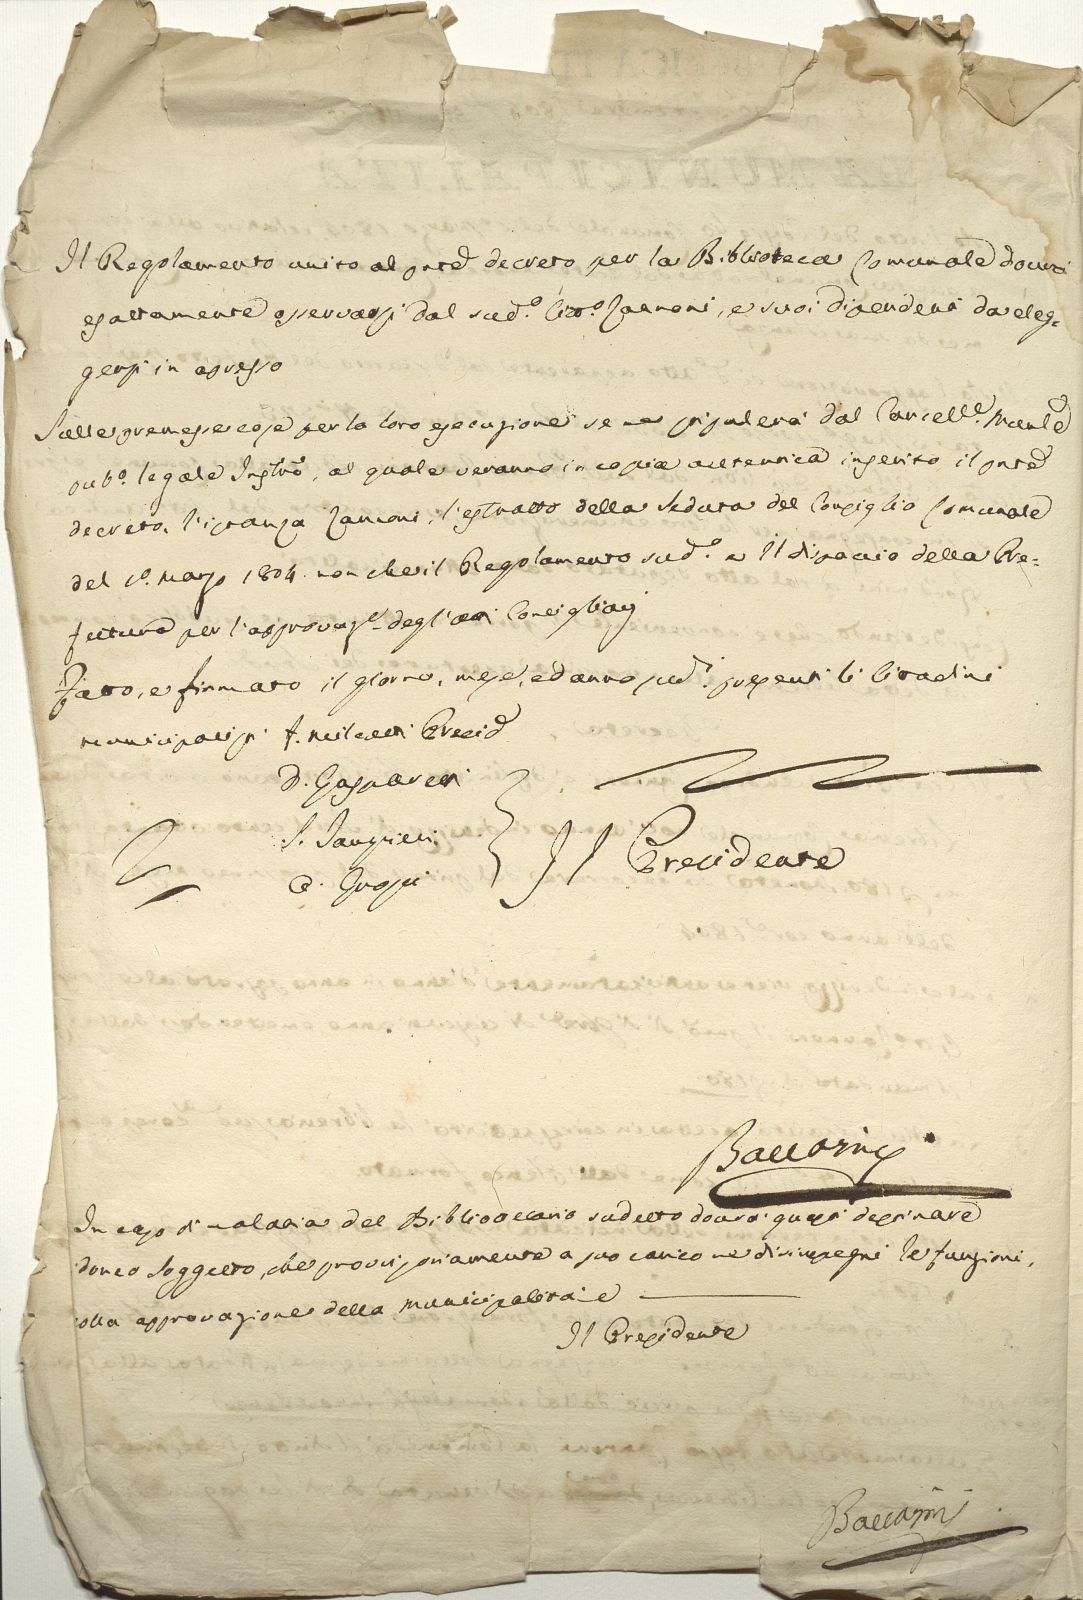 Il Regolamento unito al pnte decreto per la Biblioteca Comunale dovrà
esattamente osservarsi dal sud.o Citt.o Zannoni, e suoi dipendenti da eleg=
gersi in apresso
Sulle premesse cose per la loro esecuzione se ne stipulerà dal Cancell.e Munle
pub.o legale Instro, al quale veranno in copia autentica inserito il pnte
decreto, l'istanza Zannoni, l'estratto della Seduta del Consiglio Comunale
del 1.o Marzo 1804. non che il Regolamento sud.o e Il dispaccio della Pre=
fettura per l'approvaz.e degl'atti Consigliari
Fatto, e firmato il giorno, mese, ed anno sud.i presenti li Cittadini
Municipalisti F. Presid
D. Gasparetti
S. Tampieri
Il Presidente
Baccarini
In caso di malatia del Bibliotecario sudetto dovrà questi destinare
idoneo Soggetto, che provisoriamente a suo carico ne disimpegni le funzioni,
colla approvazione della Municipalità
Il Presidente
Baccarini